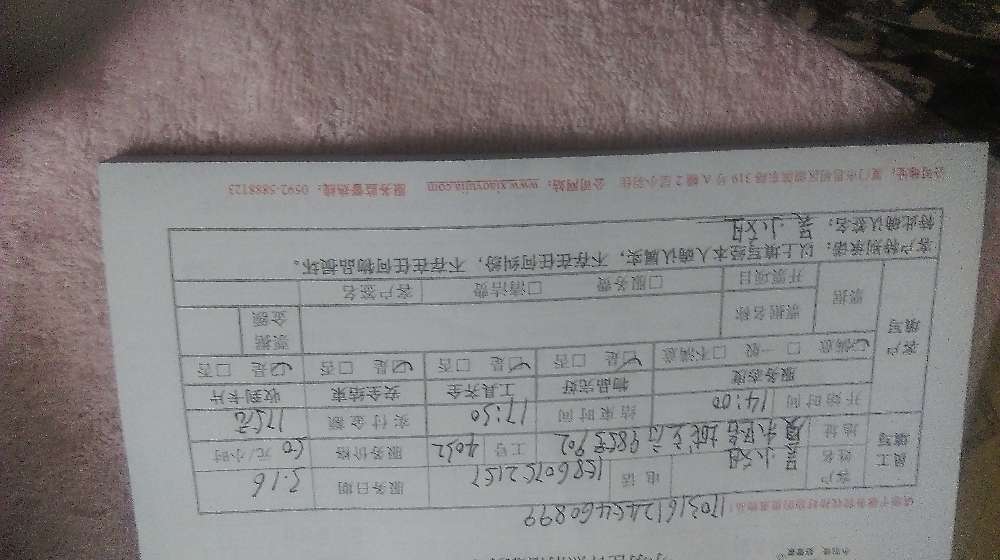 请您于服务前收好您的贵重物品！
17031612454460899
员工填写 客户姓名 吴小姐 电话 15860752157 服务日期 3.16
地址 98号902 工号 4032 服务价格 60 元/小时
开始时间 14:00 结束时间 17:30 实付金额 175元
客户填写 服务态度 物品完好 工具齐全 安全结束 收到卡片
☑满意 □一般 □不满意 ☑是 □否 ☑是 □否 ☑是 □否 ☑是 □否
票据 票据名称 票据金额
开票项目 □服务费 □清洁费 客户签名
客户特别承诺：以上填写经本人确认属实，不存在任何纠纷，不存在任何物品损坏。
特此确认签名：吴小姐
公司地址：厦门市思明区 319号A幢2层小羽佳 公司网站：www.xiaoyujia.com 服务监督热线：0592-5888123